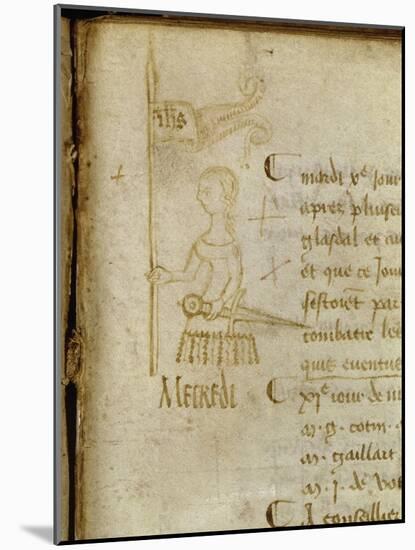 ihs
Mardi xe jour
apres plusieu
glasdal et
et que ce jour
sestoient par
combatre les
quis eventus
MECREDI
xie jour de m
m. g. cotin
m. gaillart
m. j. de
A conseillier